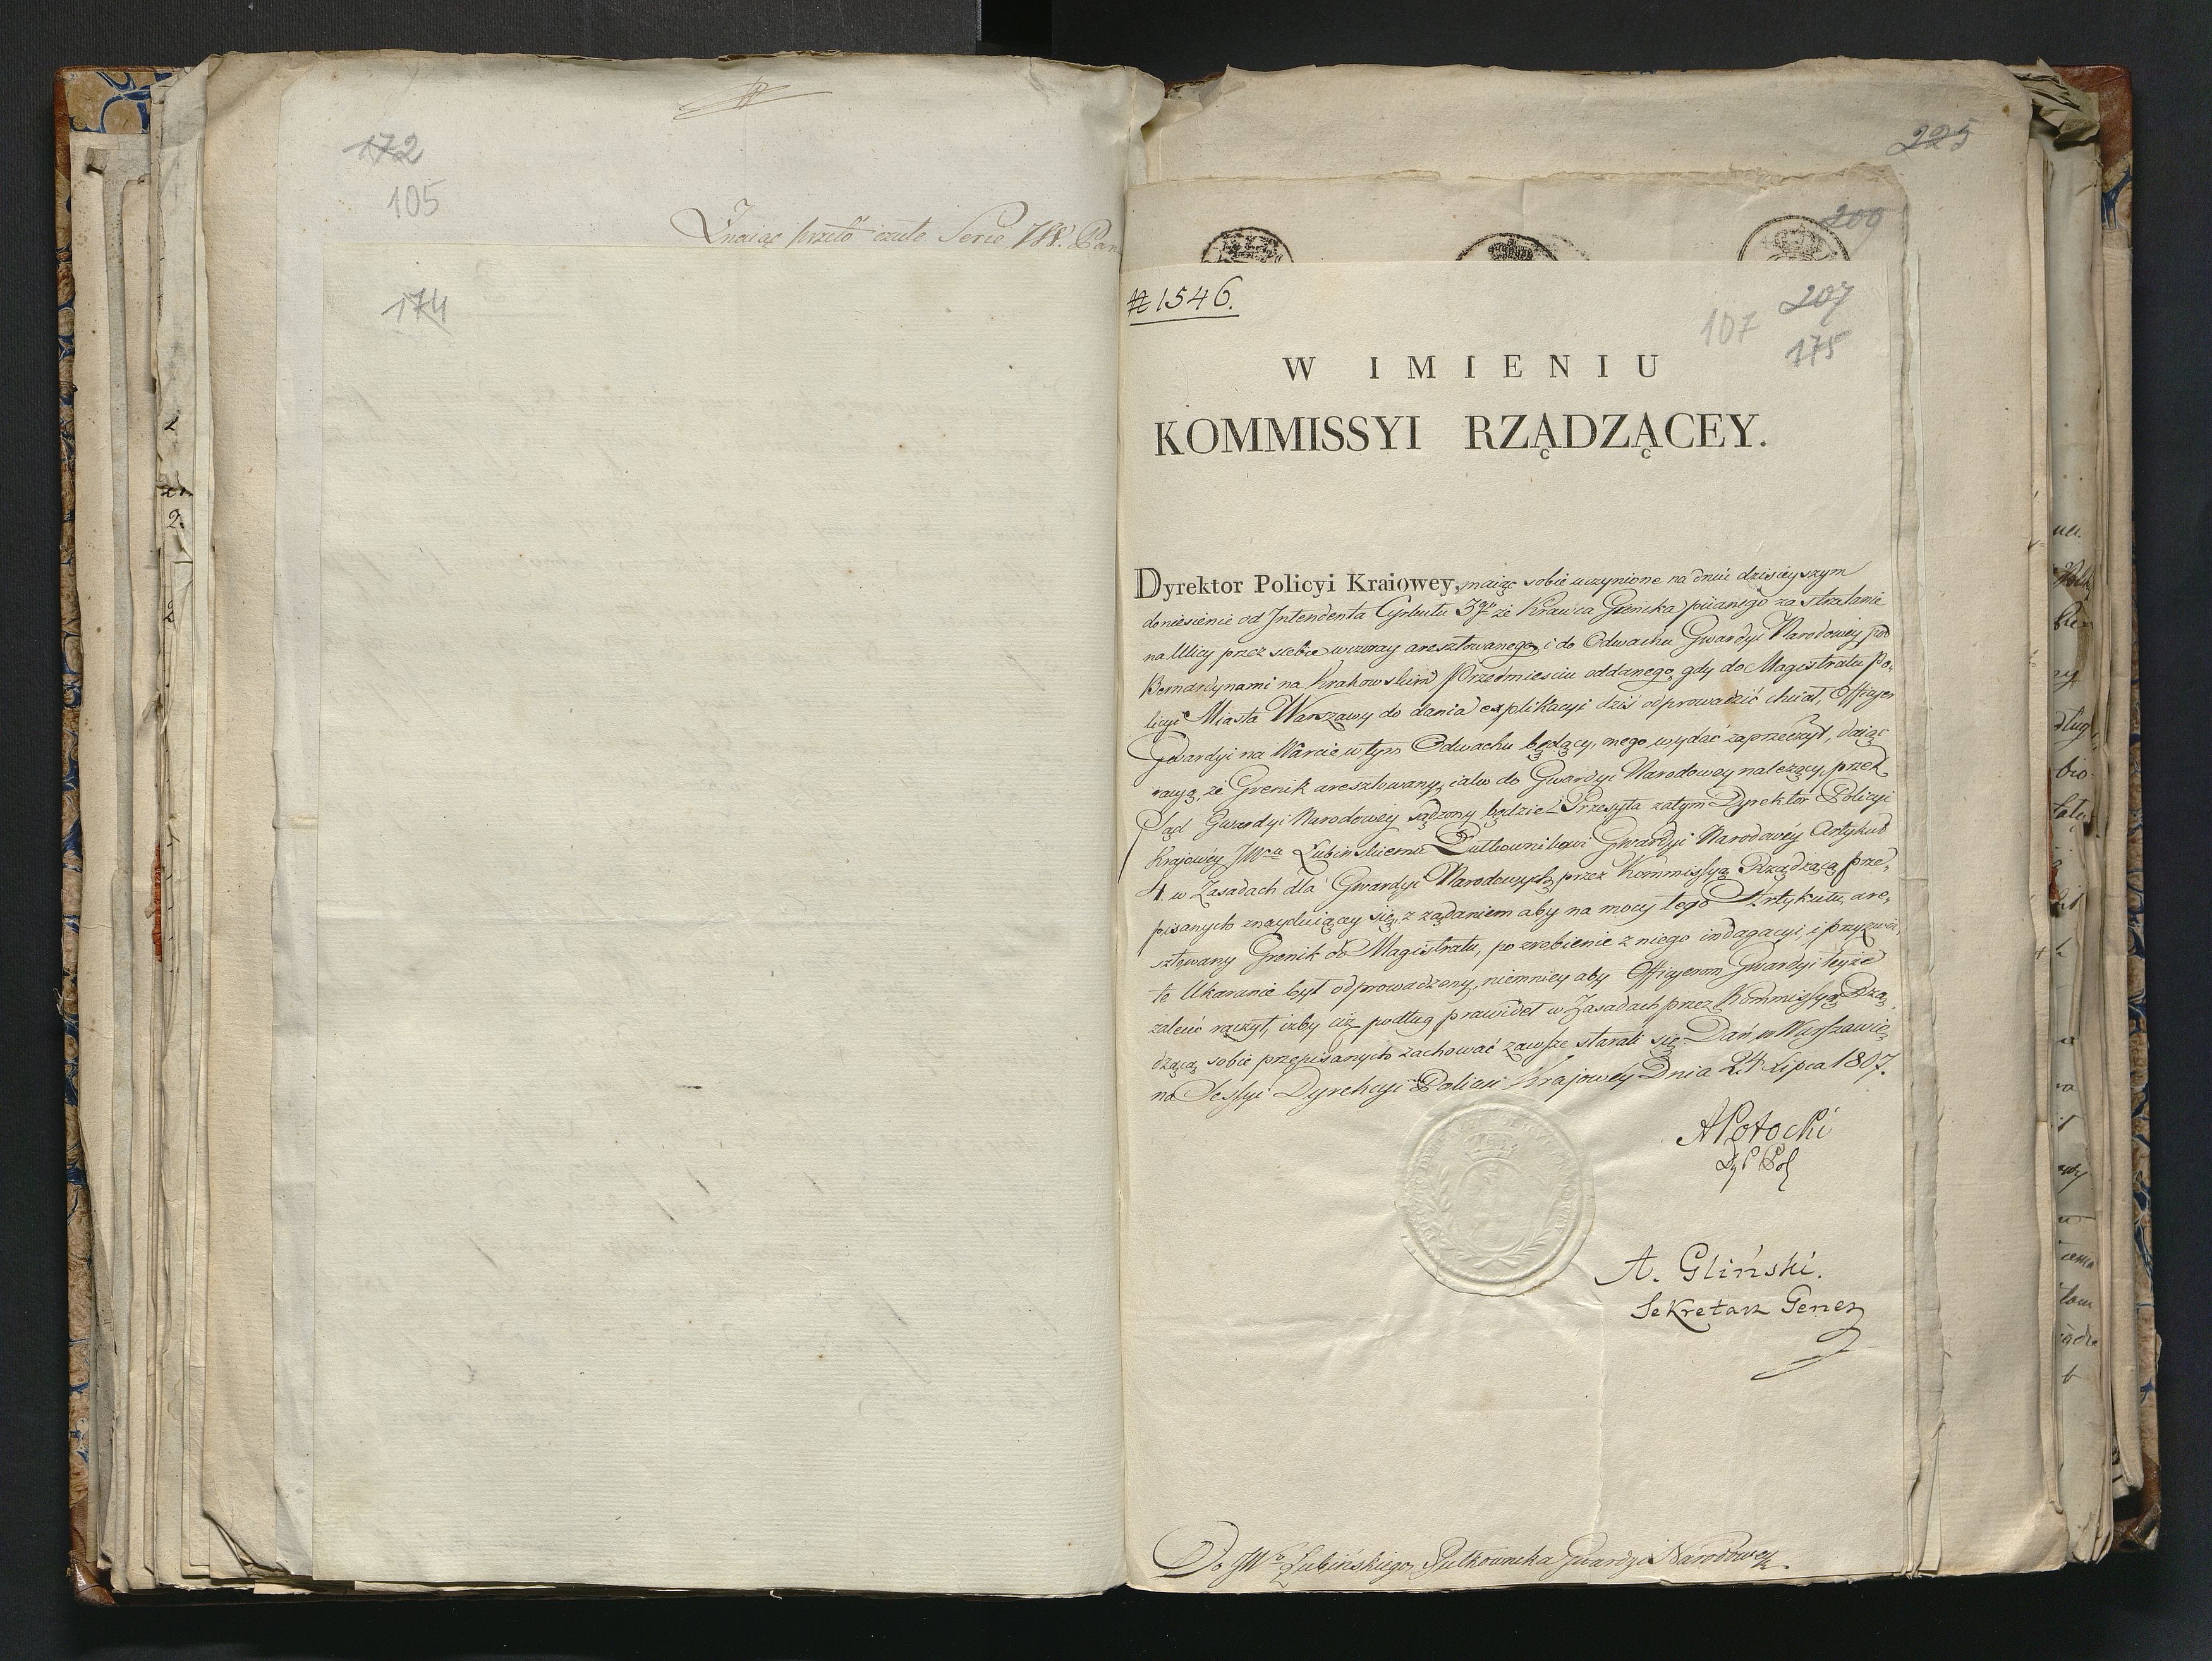 172
105
Znaiąc przeto czułe Serce JW. Pan
174
225
209
№ 1546.
207
107
175
W IMIENIU
KOMMISSYI RZĄDZĄCEY.
Dyrektor Policyi Kraiowey, maiąc sobie uczynione na dniu dzisieyszym
doniesienie od Intendenta Cyrkułu 3go że Krawca Grenika piianego za strzelanie
na Ulicy przez siebie wczoray aresztowanego, i do Odwachu Gwardyi Narodowey pod
Bernardynami na Krakowskim Przedmieściu oddanego, gdy do Magistratu Po-
licyi Miasta Warszawy do dania explikacyi dziś odprowadzić chciał, Officyer
Gwardyi na Warcie w tym Odwachu będący, onego wydać zaprzeczył, daiąc
racyą, że Grenik aresztowany, iako do Gwardyi Narodowey należący, przez
Sąd Gwardyi Narodowey sądzony będzie. Przesyła zatym Dyrektor Policyi
Krajowéy JWmu Łubinskiemu Pułkownikowi Gwardyi Narodowéy Artykuł
4. w Zasadach dla Gwardyi Narodowych przez Kommissyą Rządzącą prze-
pisanych znayduiący się, z żądaniem aby na mocy tego Artykułu, are-
sztowany Grenik do Magistratu, po zrobienie z niego indagacyi, i przyzwoi-
te Ukaranie był odprowadzony, niemniey aby Officyerom Gwardyi teyże
zalecić raczył, iżby się podług prawideł w Zasadach przez Kommissyą Rzą-
dzącą sobie przepisanych zachować zawsze starali się. Dań w Warszawie
na Sessyi Dyrekcyi Policyi Krajowéy Dnia 24 Lipca 1807.
APotocki
A. Gliński.
Sekretarz Gener
Do JWo Łubińskiego, Pułkownika Gwardyi Narodowey.